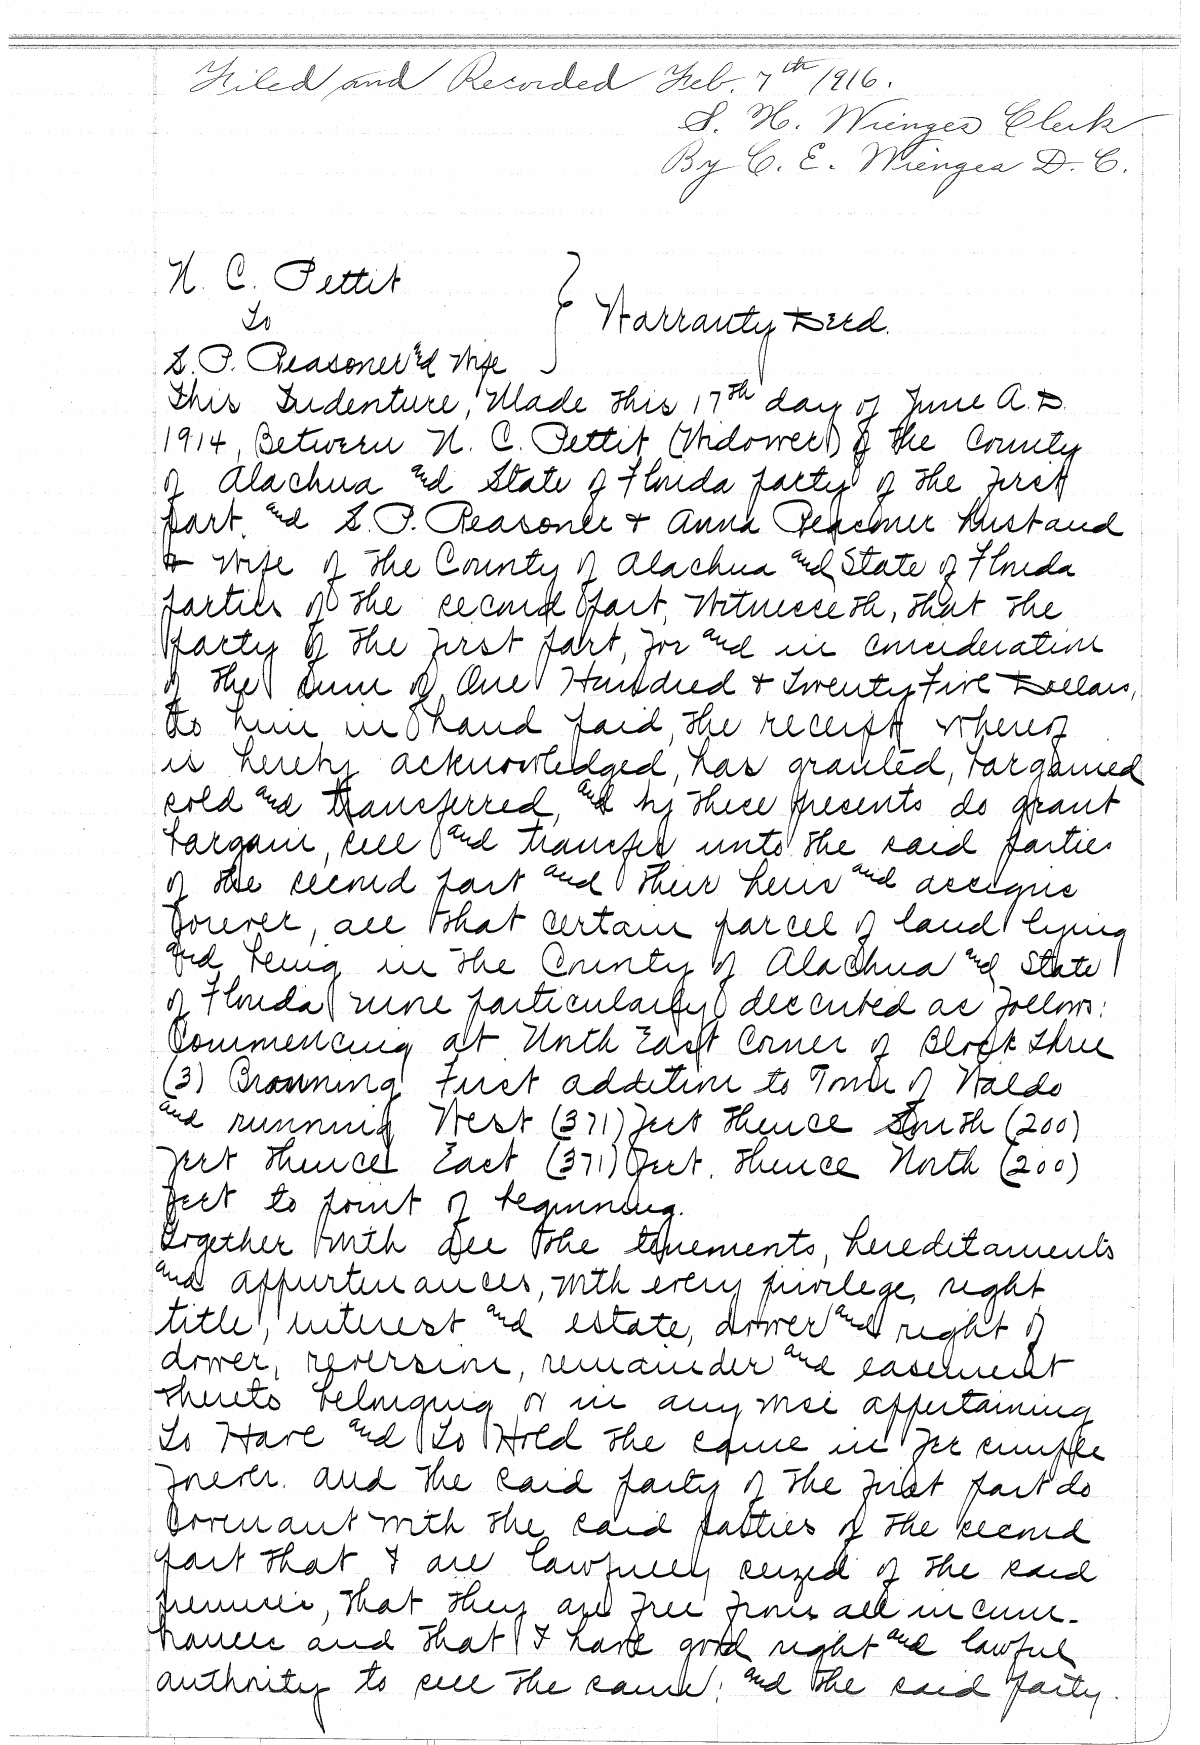 Filed and Recorded Feb. 7th 1916.
S. H. Wienges Clerk
By C. E. Wienges D. C.
N. C. Pettit
To
Warranty Deed.
S. P. Reasoner and Wife
This Indenture, Made this 17th day of June A. D.
1914, Between N. C. Pettit (Widower) of the County
of Alachua and State of Florida party of the first
part. and S. P. Reasoner & Anna Reasoner husband
& wife of the County of Alachua and State of Florida
parties of the second part, Witnesseth, that the
party of the first part, for and in consideration
of the sum of One Hundred & Twenty Five Dollars,
to him in hand paid, the receipt whereof
is hereby acknowledged, has granted, bargained
sold and transferred, and by these presents do grant
bargain, sell and transfer unto the said parties
of the second part and their heirs and assigns
forever, all that certain parcel of land lying
and being in the County of Alachua and State
of Florida more particularly described as follows:
Commencing at North East Corner of Block Three
(3) Browning First addition to Town of Waldo
and running West (371) feet thence South (200)
feet thence East (371) feet. thence North (200)
feet to point of beginning.
Together with all the tenements, hereditaments
and appurtenances, with every privilege, right
title, interest and estate, dower and right of
dower, reversion, remainder and easement
thereto belonging or in any wise appertaining
To Have and To Hold the same in fee simple
forever. and the said party of the first part do
covenant with the said parties of the second
part that I are lawfully seized of the said
premises, that they are free from all incum-
brances and that I have good right and lawful
authority to sell the same; and the said party